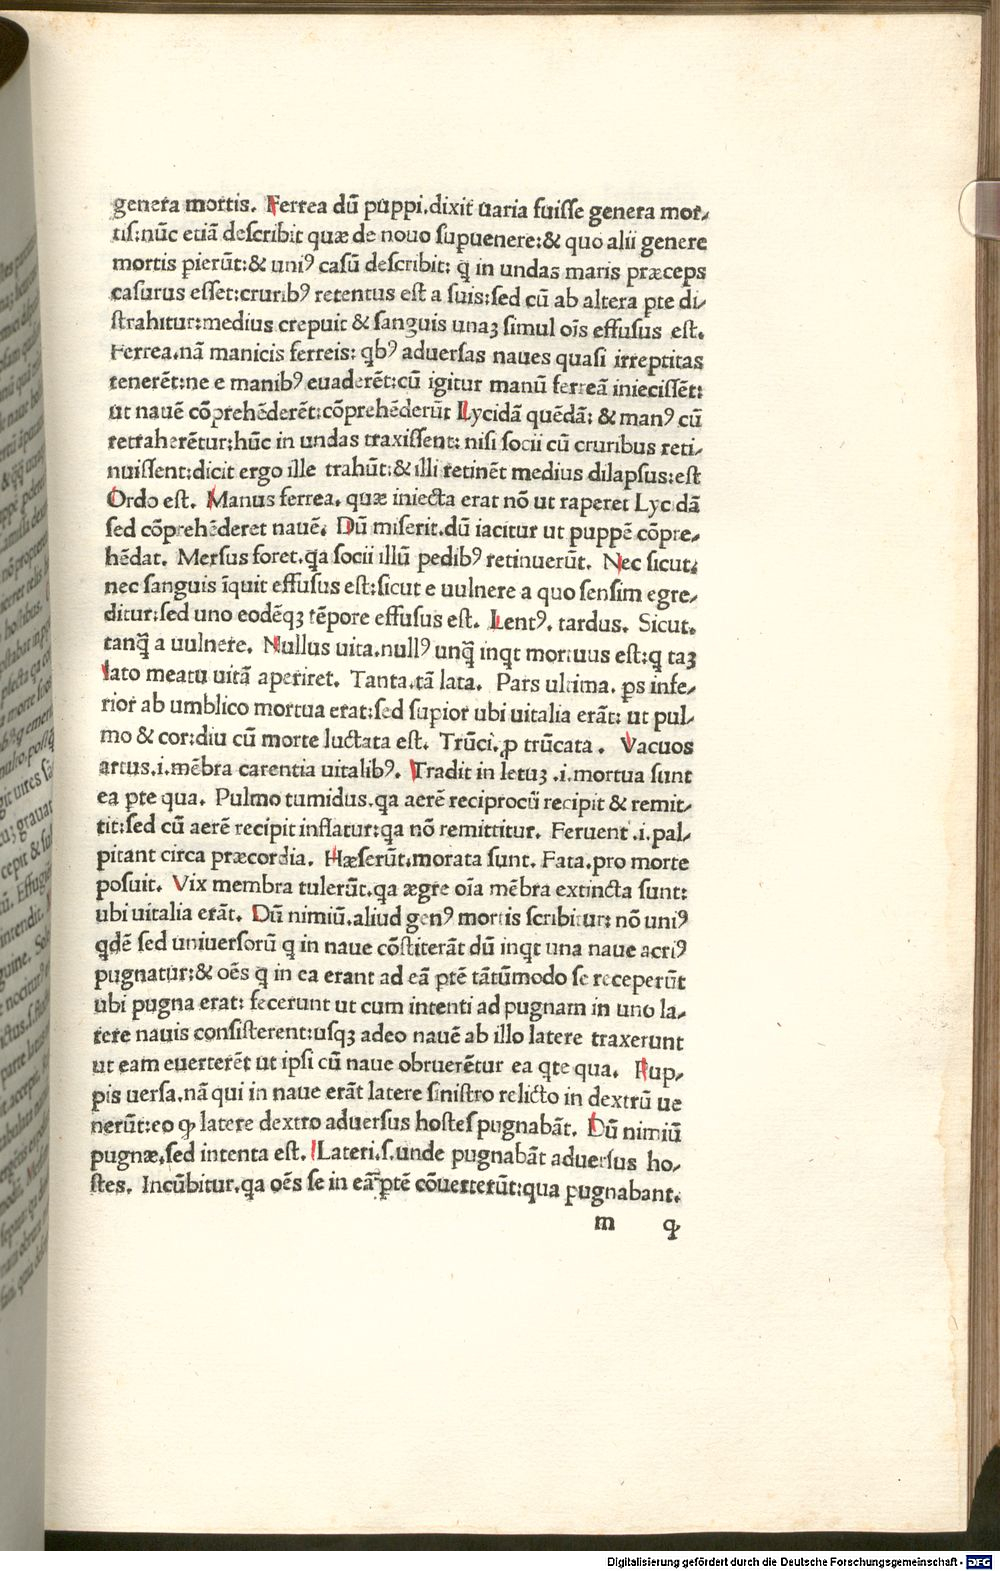 genera mortis. Ferrea dū puppi.dixit uaria fuisse genera mor⸗
tis:nūc etiā describit quæ de nouo supuenere:& quo alii genere
mortis pierūt:& uniꝰ casū describit: q̄ in undas maris præceps
casurus esset:cruribꝰ retentus est a suis:sed cū ab altera ꝑte di⸗
strahitur:medius crepuit & sanguis unaꝫ simul oīs effusus est.
Ferrea.nā manicis ferreis: qbꝰ aduersas naues quasi irreptitas
tenerēt:ne e manibꝰ euaderēt:cū igitur manū ferreā iniecissēt:
ut nauē cōprehēderēt:cōprehēderūt Lycidā quēdā: & manꝰ cū
retraherētur:hūc in undas traxissent: nisi socii cū cruribus reti⸗
nuissent:dicit ergo ille trahūt:& illi retinēt medius dilapsus:est
Ordo est. Manus ferrea. quæ iniecta erat nō ut raperet Lycidā
sed cōprehēderet nauē. Dū miserit.dū iacitur ut puppē cōpre⸗
hēdat. Mersus foret.qa socii illū pedibꝰ retinuerūt. Nec sicut:
nec sanguis īquit effusus est:sicut e uulnere a quo sensim egre⸗
ditur:sed uno eodēqꝫ tēpore effusus est. Lentꝰ. tardus. Sicut.
tanq̄ a uulnere. Nullus uita.nullꝰ unq̄ inqt mortuus est:q taꝫ
lato meatu uitā aperiret. Tanta.tā lata. Pars ultima. ꝑs infe⸗
rior ab umblico mortua erat:sed supior ubi uitalia erāt: ut pul⸗
mo & cor:diu cū morte luctata est. Trūci.ꝓ trūcata . Vacuos
artus.i.mēbra carentia uitalibꝰ. Tradit in letuꝫ .i.mortua sunt
ea ꝑte qua. Pulmo tumidus.qa aerē reciprocū recipit & remit⸗
tit:sed cū aerē recipit inflatur:qa nō remittitur. Feruent .i.pal⸗
pitant circa præcordia. Hæserūt.morata sunt. Fata.pro morte
posuit. Vix membra tulerūt.qa ægre oīa mēbra extincta sunt:
ubi uitalia erāt. Dū nimiū.aliud genꝰ mortis scribitur: nō uniꝰ
qdē sed uniuersorū q in naue cōstiterāt dū inqt una naue acriꝰ
pugnatur:& oēs q̄ in ea erant ad eā ꝑtē tātūmodo se receperūt
ubi pugna erat: fecerunt ut cum intenti ad pugnam in uno la⸗
tere nauis consisterent:usqꝫ adeo nauē ab illo latere traxerunt
ut eam euerterēt ut ipsi cū naue obruerētur ea qte qua. Pup⸗
pis uersa.nā qui in naue erāt latere sinistro relicto in dextrū ue
nerūt:eo ꝙ latere dextro aduersus hostes pugnabāt. Dū nimiū
pugnæ.sed intenta est. Lateri.s.unde pugnabāt aduersus ho⸗
stes. Incūbitur.qa oēs se in eā ꝑtē cōuerterūt:qua pugnabant.
m q
Digitalisierung gefördert durch die Deutsche Forschungsgemeinschaft - DFG